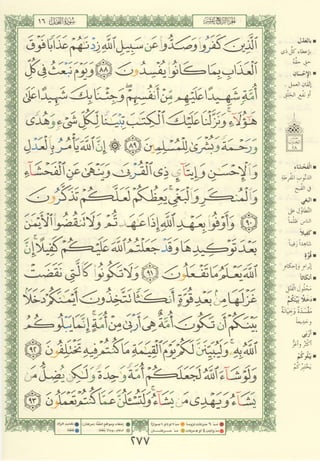 سورة النحل ١٦
الجزء الرابع عشر
ٱلَّذِينَ كَفَرُوا۟ وَصَدُّوا۟ عَن سَبِيلِ ٱللَّهِ زِدْنَٰهُمْ عَذَابًا فَوْقَ
ٱلْعَذَابِ بِمَا كَانُوا۟ يُفْسِدُونَ ٨٨ وَيَوْمَ نَبْعَثُ فِى كُلِّ
أُمَّةٍ شَهِيدًا عَلَيْهِم مِّنْ أَنفُسِهِمْ وَجِئْنَا بِكَ شَهِيدًا عَلَىٰ
هَٰٓؤُلَآءِ وَنَزَّلْنَا عَلَيْكَ ٱلْكِتَٰبَ تِبْيَٰنًا لِّكُلِّ شَىْءٍ وَهُدًى
وَرَحْمَةً وَبُشْرَىٰ لِلْمُسْلِمِينَ ٨٩ إِنَّ ٱللَّهَ يَأْمُرُ بِٱلْعَدْلِ
وَٱلْإِحْسَٰنِ وَإِيتَآئِ ذِى ٱلْقُرْبَىٰ وَيَنْهَىٰ عَنِ ٱلْفَحْشَآءِ
وَٱلْمُنكَرِ وَٱلْبَغْىِ يَعِظُكُمْ لَعَلَّكُمْ تَذَكَّرُونَ
٩٠ وَأَوْفُوا۟ بِعَهْدِ ٱللَّهِ إِذَا عَٰهَدتُّمْ وَلَا تَنقُضُوا۟ ٱلْأَيْمَٰنَ
بَعْدَ تَوْكِيدِهَا وَقَدْ جَعَلْتُمُ ٱللَّهَ عَلَيْكُمْ كَفِيلًا إِنَّ
ٱللَّهَ يَعْلَمُ مَا تَفْعَلُونَ ٩١ وَلَا تَكُونُوا۟ كَٱلَّتِى نَقَضَتْ
غَزْلَهَا مِنۢ بَعْدِ قُوَّةٍ أَنكَٰثًا تَتَّخِذُونَ أَيْمَٰنَكُمْ دَخَلًۢا
بَيْنَكُمْ أَن تَكُونَ أُمَّةٌ هِىَ أَرْبَىٰ مِنْ أُمَّةٍ إِنَّمَا يَبْلُوكُمُ
ٱللَّهُ بِهِۦ وَلَيُبَيِّنَنَّ لَكُمْ يَوْمَ ٱلْقِيَٰمَةِ مَا كُنتُمْ فِيهِ تَخْتَلِفُونَ ٩٢
وَلَوْ شَآءَ ٱللَّهُ لَجَعَلَكُمْ أُمَّةً وَٰحِدَةً وَلَٰكِن يُضِلُّ مَن
يَشَآءُ وَيَهْدِى مَن يَشَآءُ وَلَتُسْـَٔلُنَّ عَمَّا كُنتُمْ تَعْمَلُونَ ٩٣
٢٧٧